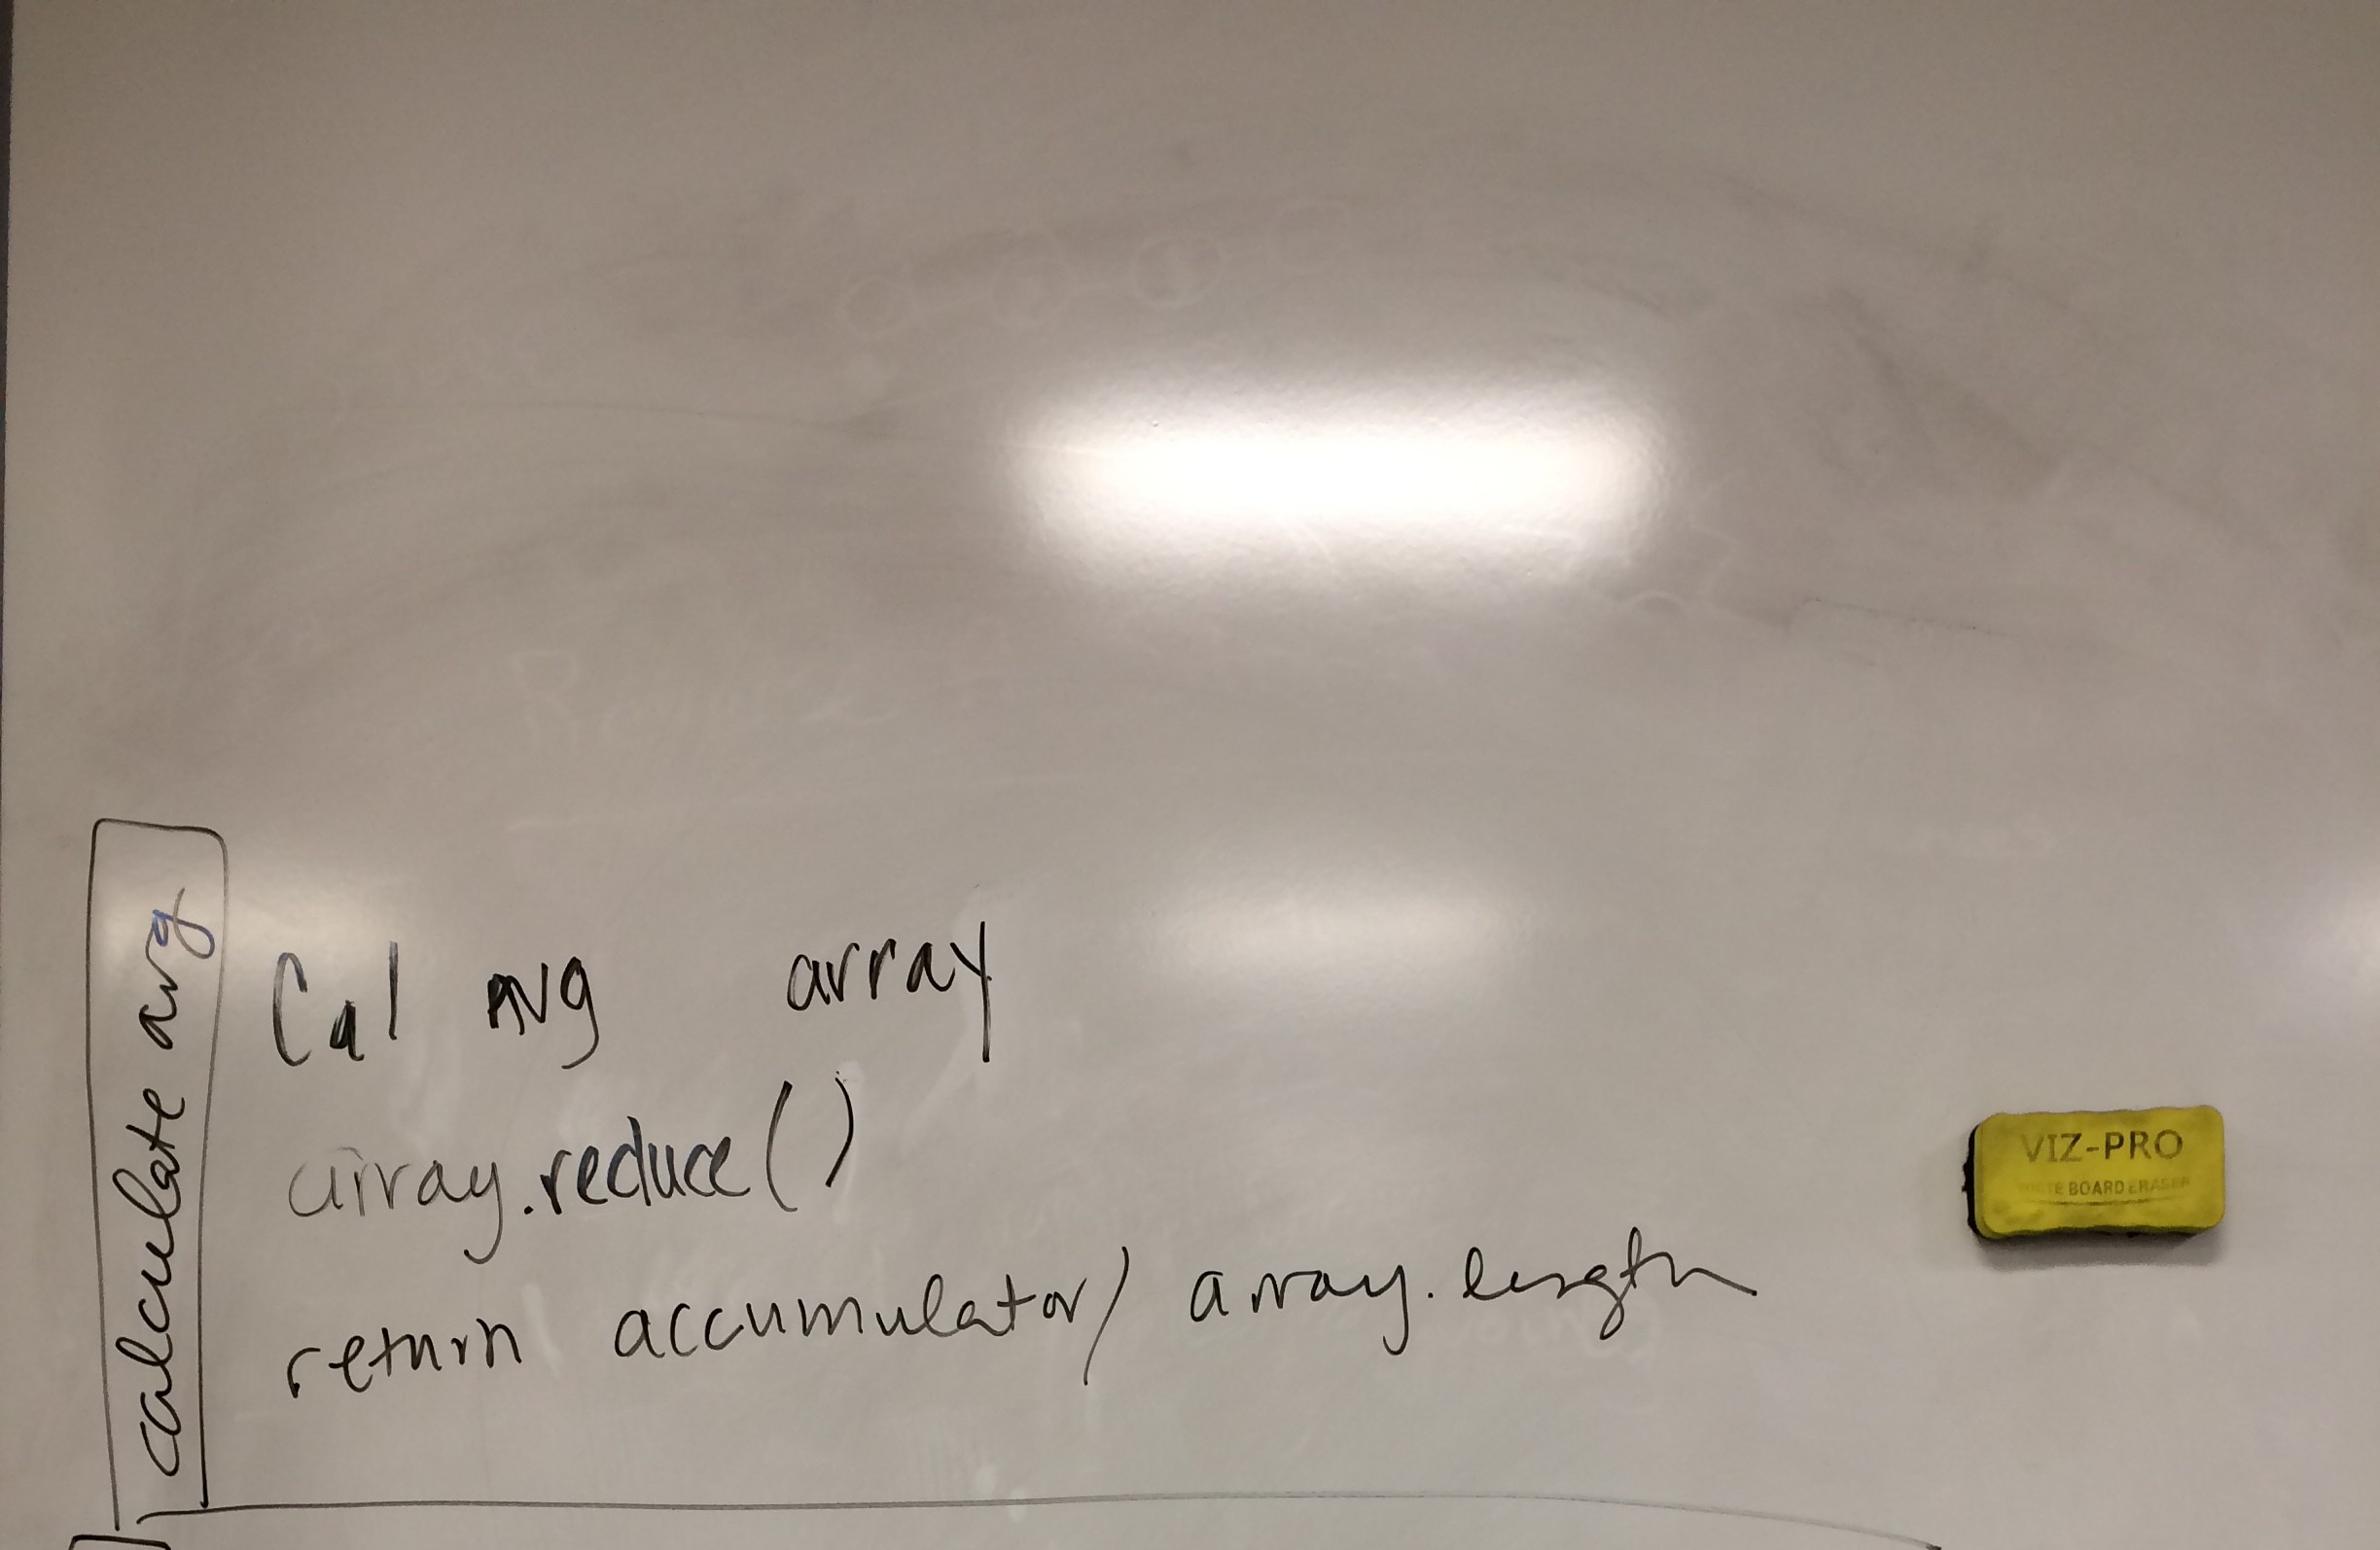 calculate avg
Cal avg array
array.reduce()
return accumulator/ array.length
VIZ-PRO
BOARD ERASER